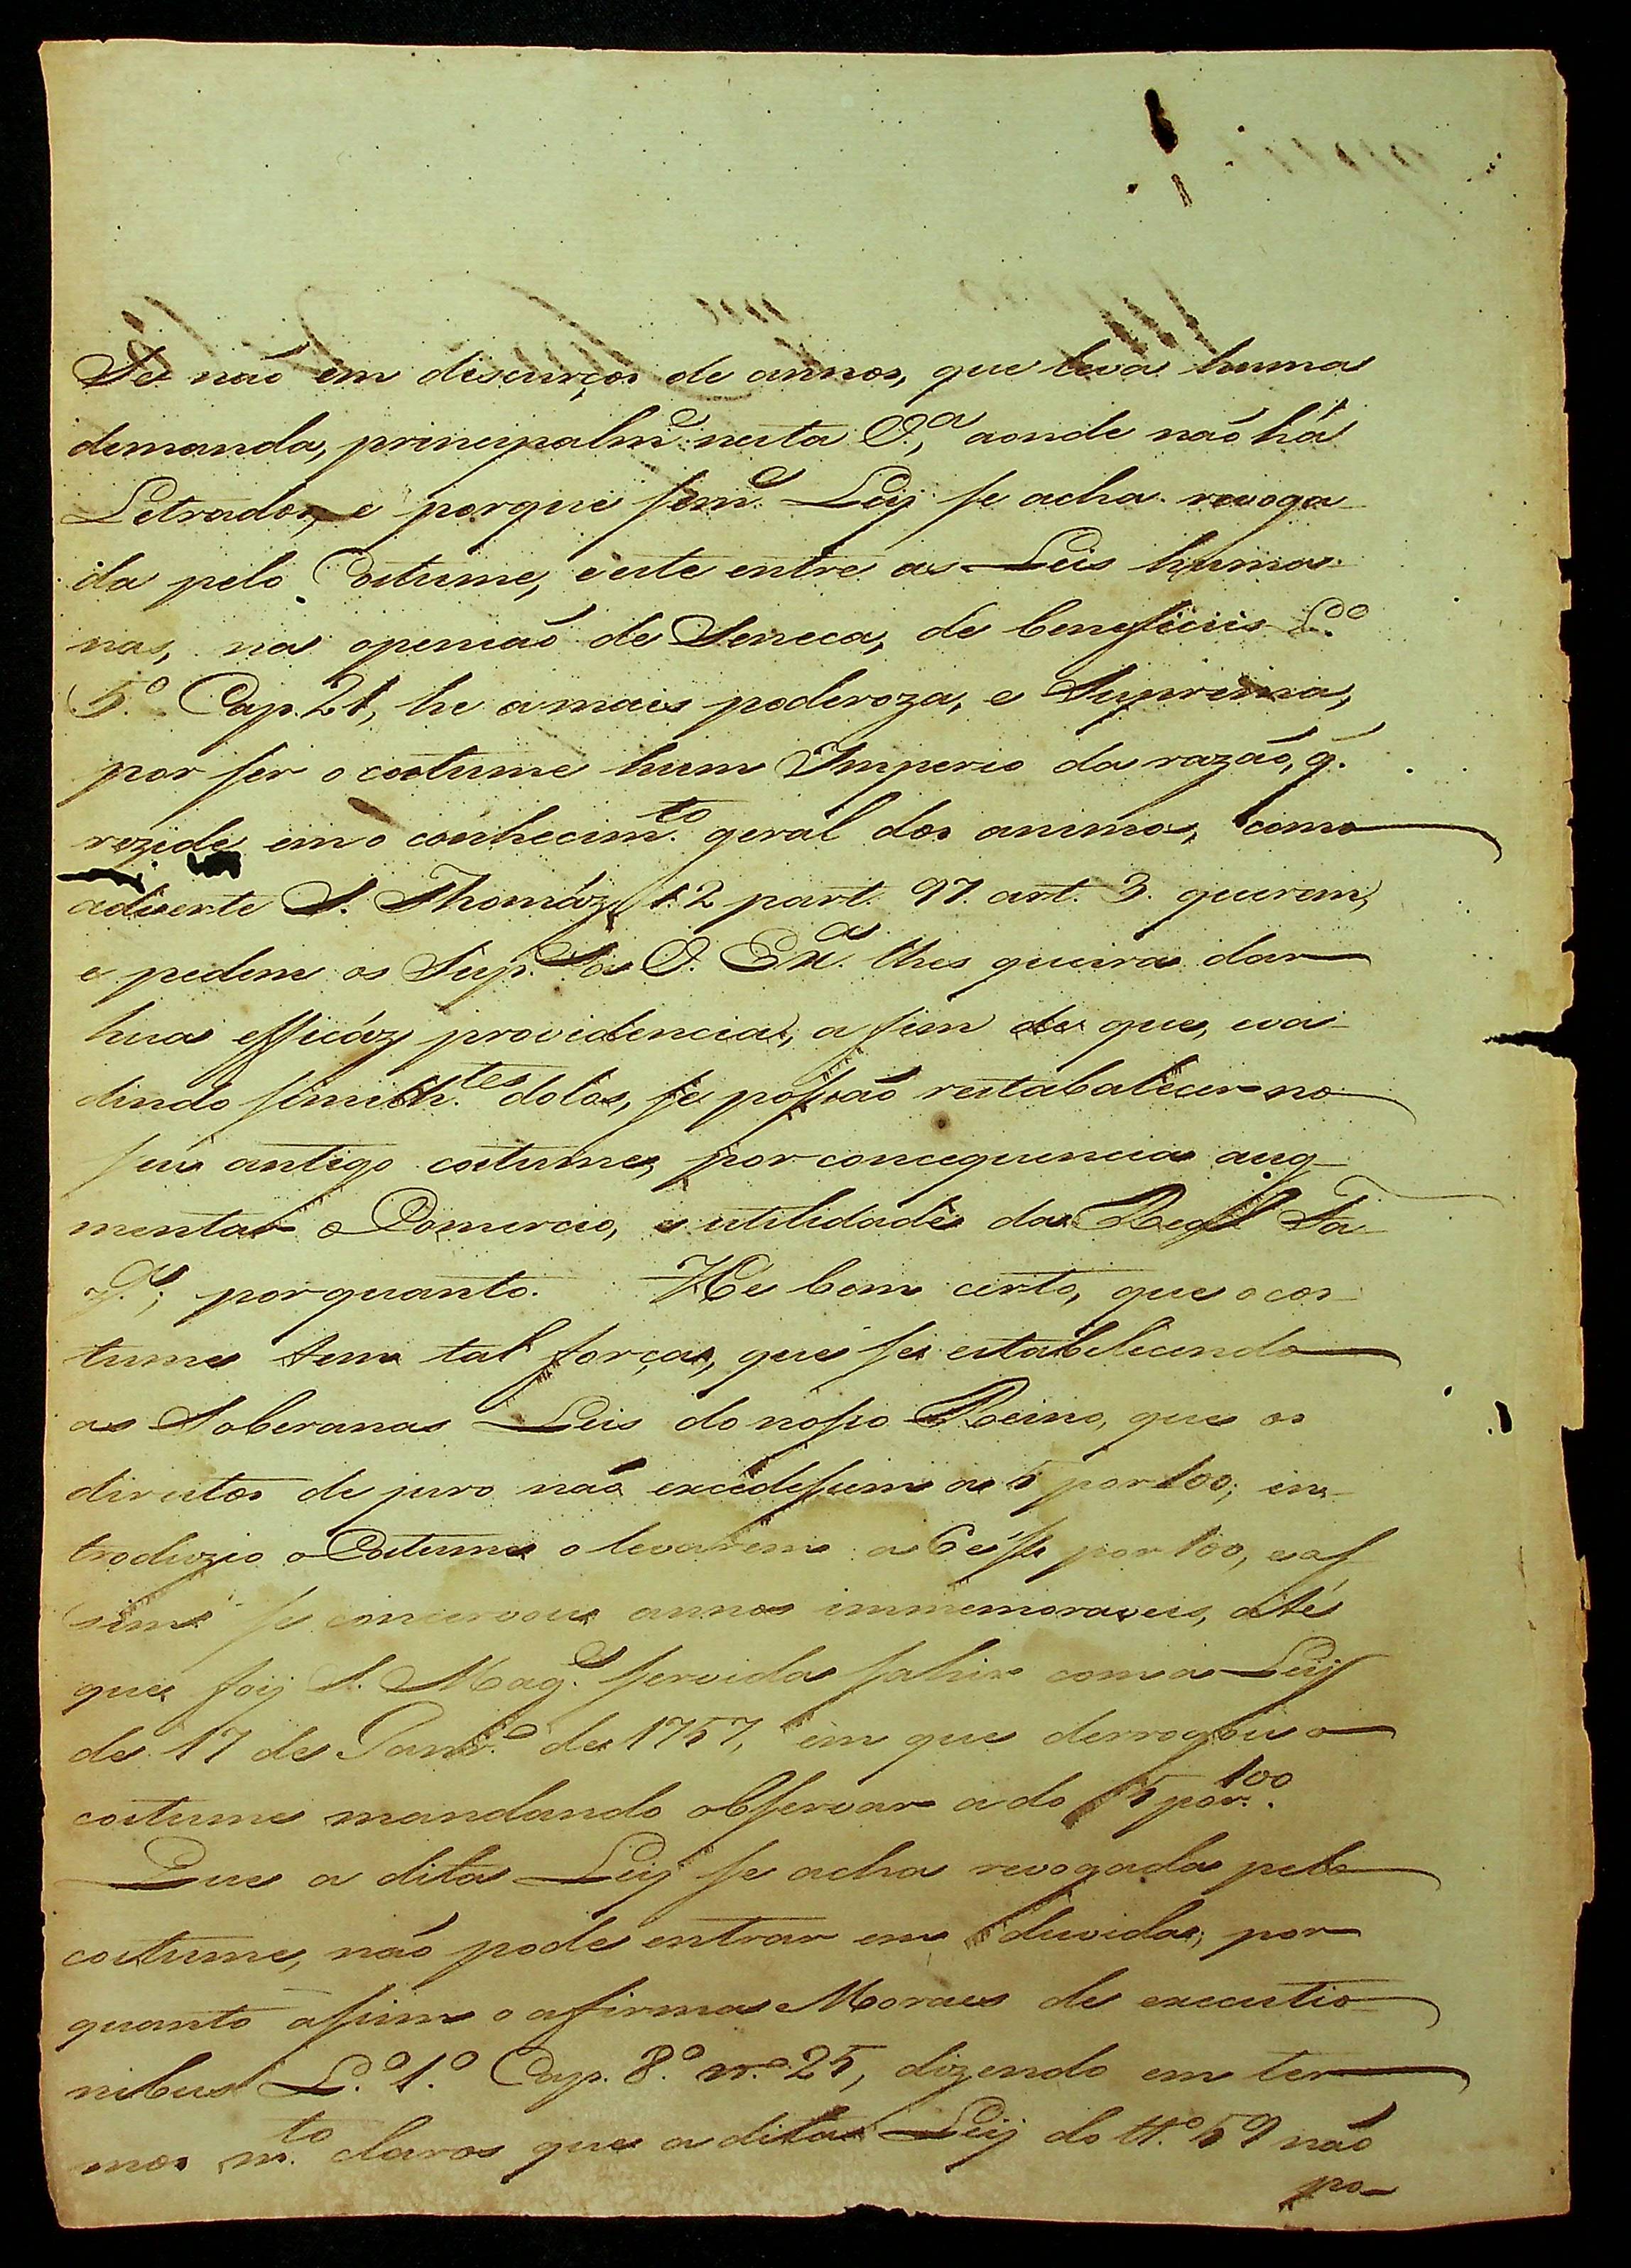 Se não em discurços de annos, que leva huma
demanda, principalm.e nesta V.a, aonde não há
Letrados, e porque sem.e Ley se acha revoga-
da pelo Costume, e este entre as Leis huma-
nas, na openiaõ de Seneca, de beneficiis L.o
5.o Cap. 21, he a mais poderoza, e Suprema,
por ser o costume hum Imperio da razaõ, q.
rezide em o conhecim.to geral dos animos, como
adverte S. Thomáz 1.2 part. 97. art. 3. querem,
e pedem os Sup.tes a V. Ex.a lhes queira dar
hua efficáz providencia, a fim de que, eva-
dindo similh.tes dolos, se possaõ restabalecer no
seu antigo costume, por concequencia aug-
mentar o Comercio, e utilidade da Real Fa-
z.a; porquanto. He bem certo, que o cos-
tume tem tal força, que se estabelecendo
as Soberanas Leis do nosso Reino, que os
direitos de juro não excedessem a 5 por 100; in-
troduzio o Costume o levarem a 6 e ¼ por 100, e as-
sim se concervou annos immemoraveis, até
que foy S. Mag.e servida sahir com a Ley
de 17 de Janr.o de 1757, em que derrogou o
costume mandando observar a do 5 por 100.
Que a dita Ley se acha revogada pelo
costume, não pode entrar em duvida, por
quanto assim o afirma Moraes de executio-
nibus L.o 1.o Cap. 8.o n.o 25, dizendo em ter-
mos m.to claros que a dita Ley do tt.o 59 não
po-